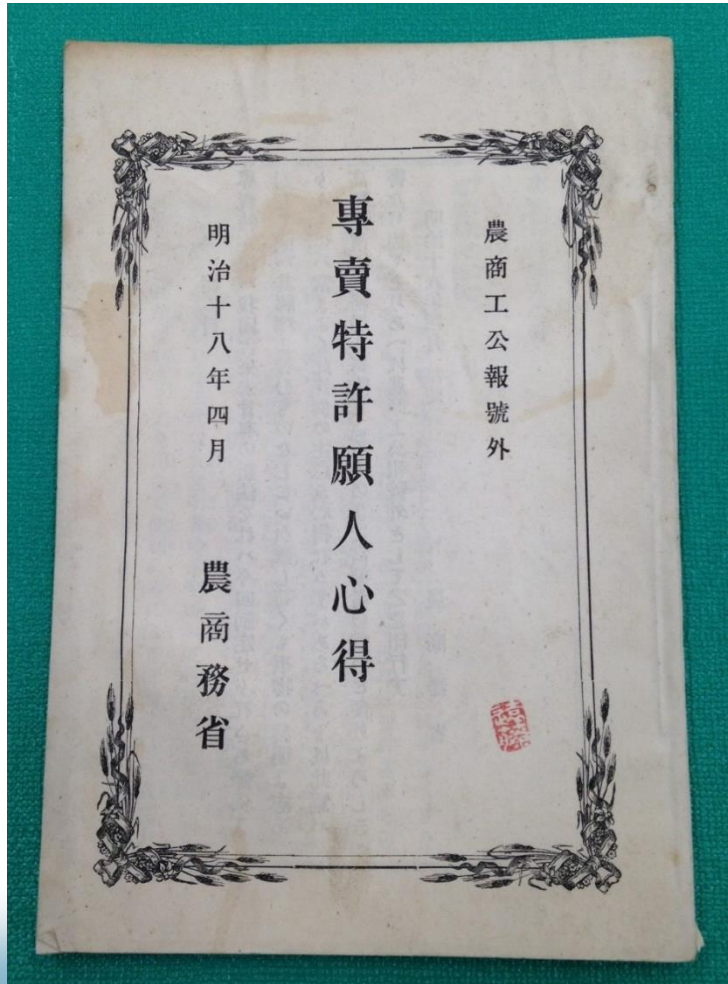 農商工公報號外
專賣特許願人心得
明治十八年四月 農商務省